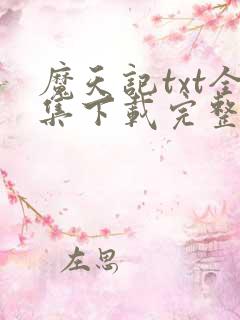 魔天记txt全
集下载完整
左思